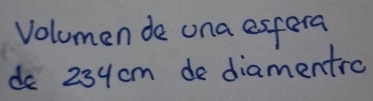 Volumen de una esfera
de 234 cm de diamentro